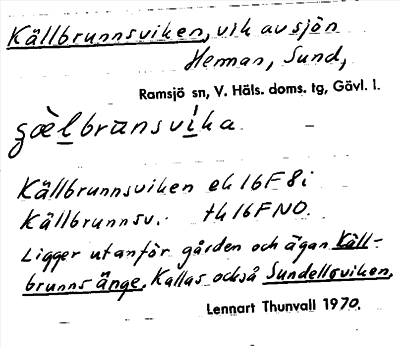 Källbrunnsviken, vik av sjön
Hennan, Sund,
Ramsjö sn, V. Häls. doms. tg, Gävl. l.
Källbrunnsviken ek 16F 8i
Källbrunnsv. tk 16F NO.
Ligger utanför gården och ägan Käll-
brunns änge. Kallas också Sundellsviken.
Lennart Thunvall 1970.